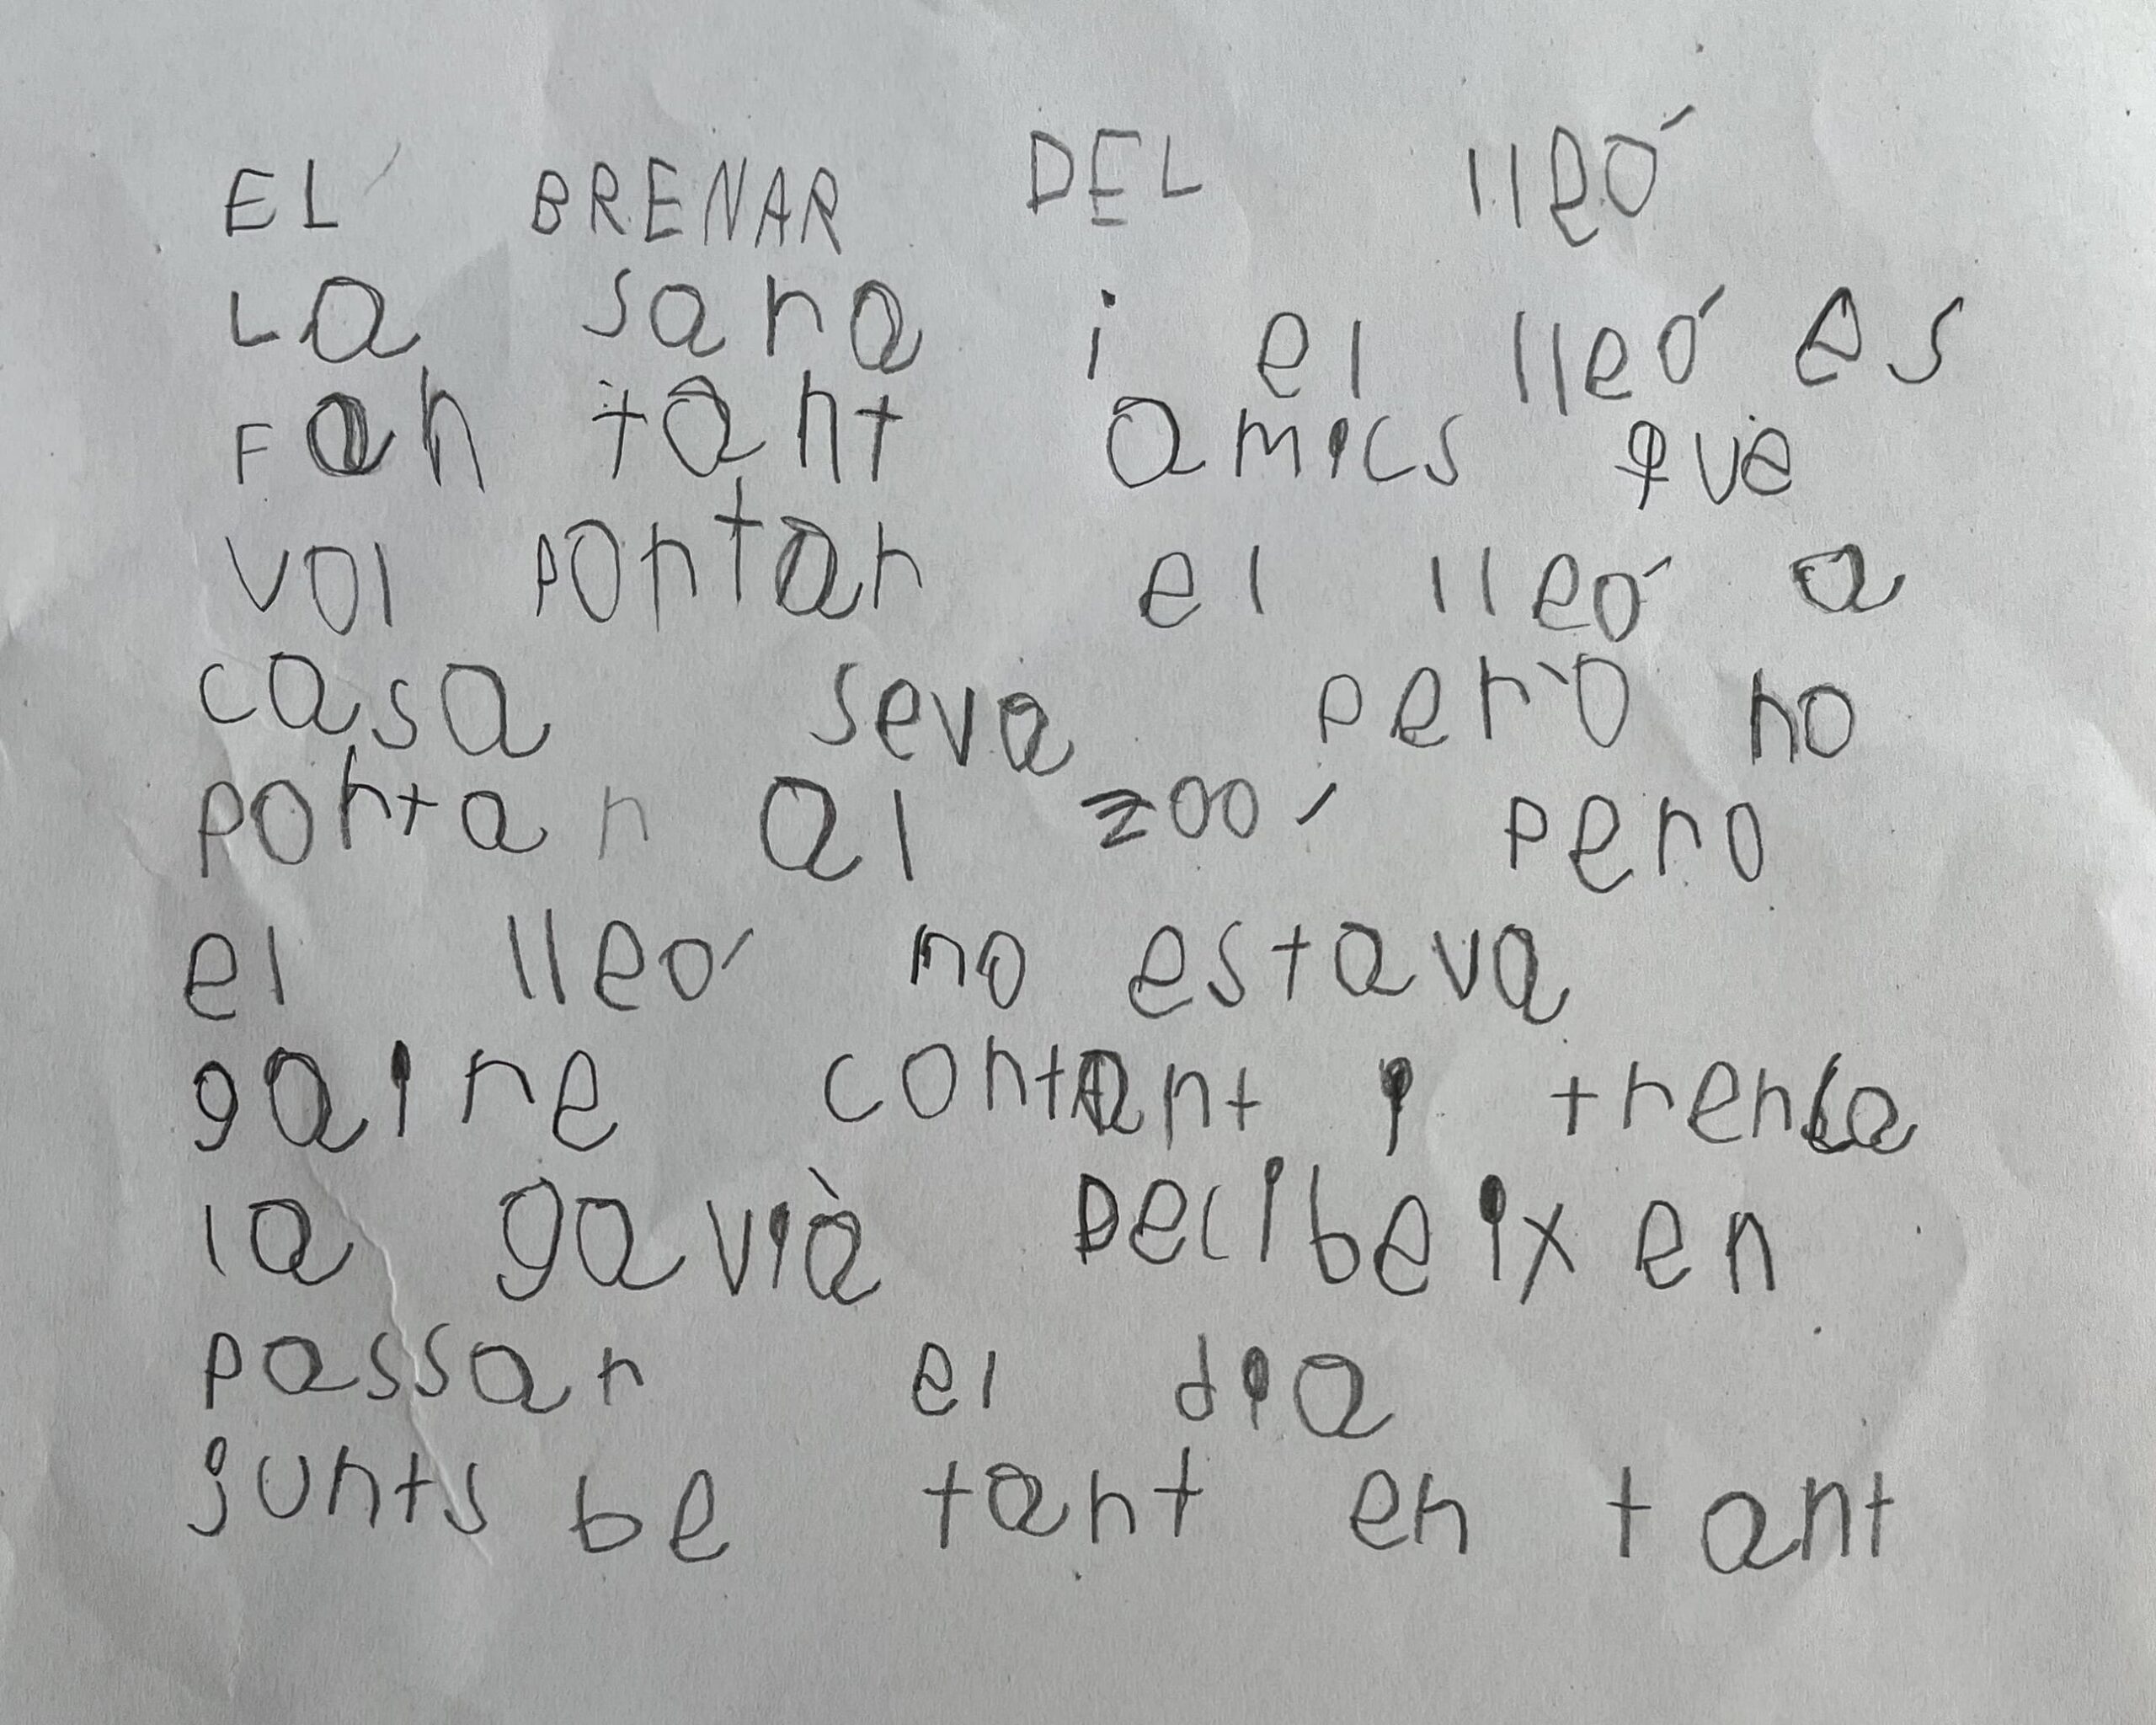 EL BRENAR DEL lleó
La sara i el lleó es
Fan tant amics que
vol portar el lleó a
casa seva però no
portar al zoo, pero
el lleó no estava
gaire contant i trenca
la gavià Decibeixen
passar el dia
junts be tant en tant